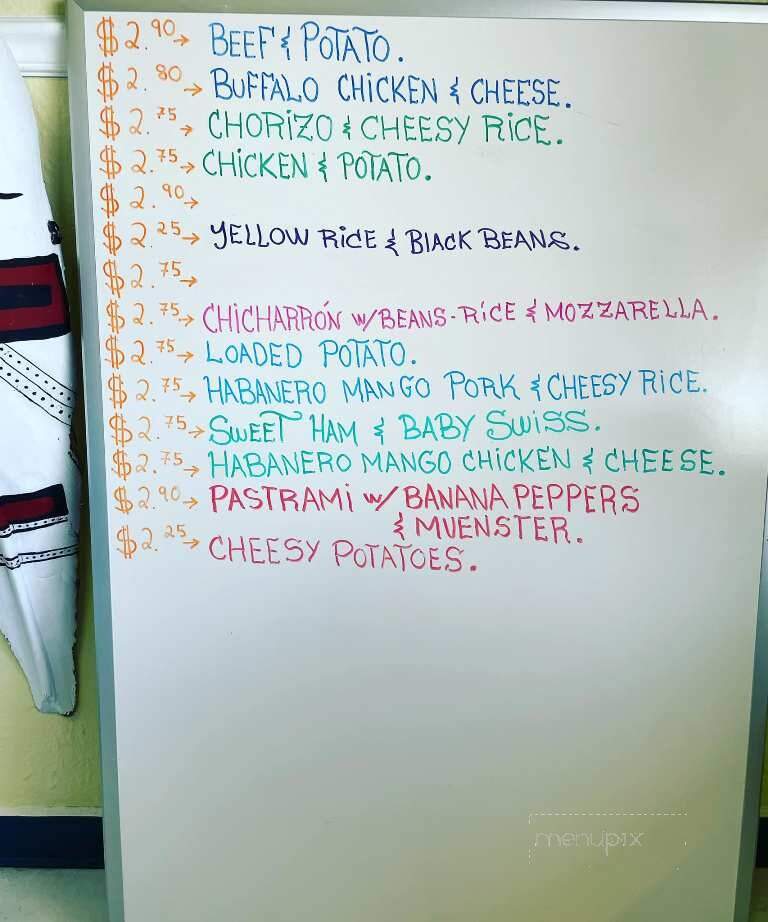 $2.90→ BEEF & POTATO.
$2.80→ BUFFALO CHICKEN & CHEESE.
$2.75→ CHORIZO & CHEESY RICE.
$2.75→ CHICKEN & POTATO.
$2.90→
$2.25→ YELLOW RICE & BLACK BEANS.
$2.75→
$2.75→ CHICHARRÓN W/BEANS-RICE & MOZZARELLA.
$2.75→ LOADED POTATO.
$2.75→ HABANERO MANGO PORK & CHEESY RICE.
$2.75→ SWEET HAM & BABY SWISS.
$2.75→ HABANERO MANGO CHICKEN & CHEESE.
$2.90→ PASTRAMI W/ BANANA PEPPERS
& MUENSTER.
$2.25→ CHEESY POTATOES.
menupix